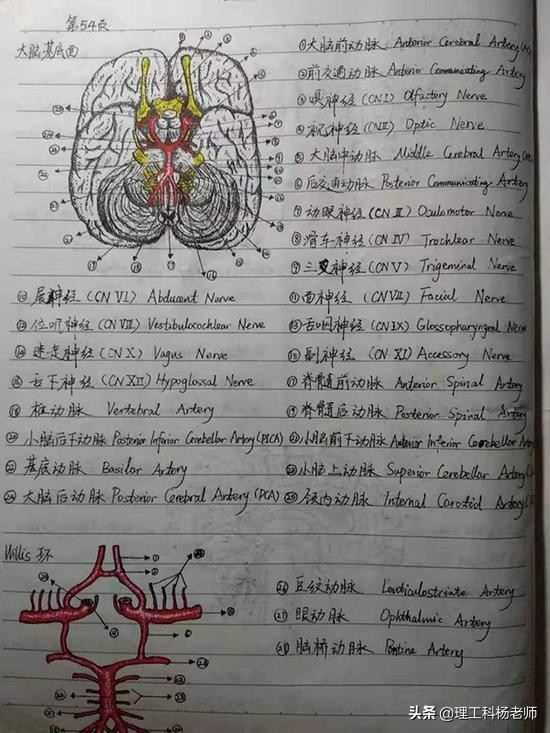 第54页
大脑基底面
①大脑前动脉 Anterior Cerebral Artery
②前交通动脉 Anterior Communicating Artery
③嗅神经 (CN I) Olfactory Nerve
④视神经 (CN II) Optic Nerve
⑤大脑中动脉 Middle Cerebral Artery
⑥后交通动脉 Posterior Communicating Artery
⑦动眼神经 (CN III) Oculomotor Nerve
⑧滑车神经 (CN IV) Trochlear Nerve
⑨三叉神经 (CN V) Trigeminal Nerve
⑩展神经 (CN VI) Abducent Nerve ⑪面神经 (CN VII) Facial Nerve
⑫位听神经 (CN VIII) Vestibulocochlear Nerve ⑬舌咽神经 (CN IX) Glossopharyngeal Nerve
⑭迷走神经 (CN X) Vagus Nerve ⑮副神经 (CN XI) Accessory Nerve
⑯舌下神经 (CN XII) Hypoglossal Nerve ⑰脊髓前动脉 Anterior Spinal Artery
⑱椎动脉 Vertebral Artery ⑲脊髓后动脉 Posterior Spinal Artery
⑳小脑后下动脉 Posterior Inferior Cerebellar Artery (PICA) ㉑小脑前下动脉 Anterior Inferior Cerebellar
㉒基底动脉 Basilar Artery ㉓小脑上动脉 Superior Cerebellar Artery
㉔大脑后动脉 Posterior Cerebral Artery (PCA) ㉕颈内动脉 Internal Carotid Artery
Willis 环
㉖豆纹动脉 Lenticulostriate Artery
㉗眼动脉 Ophthalmic Artery
㉘脑桥动脉 Pontine Artery
头条 @理工科杨老师